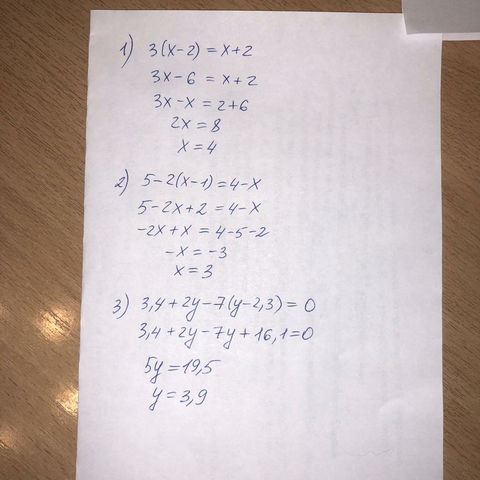 1) 3(x-2) = x+2
3x-6 = x+2
3x-x = 2+6
2x = 8
x = 4
2) 5-2(x-1)=4-x
5-2x+2 = 4-x
-2x+x = 4-5-2
-x = -3
x = 3
3) 3,4+2y-7(y-2,3) = 0
3,4+2y-7y+16,1=0
5y = 19,5
y = 3,9